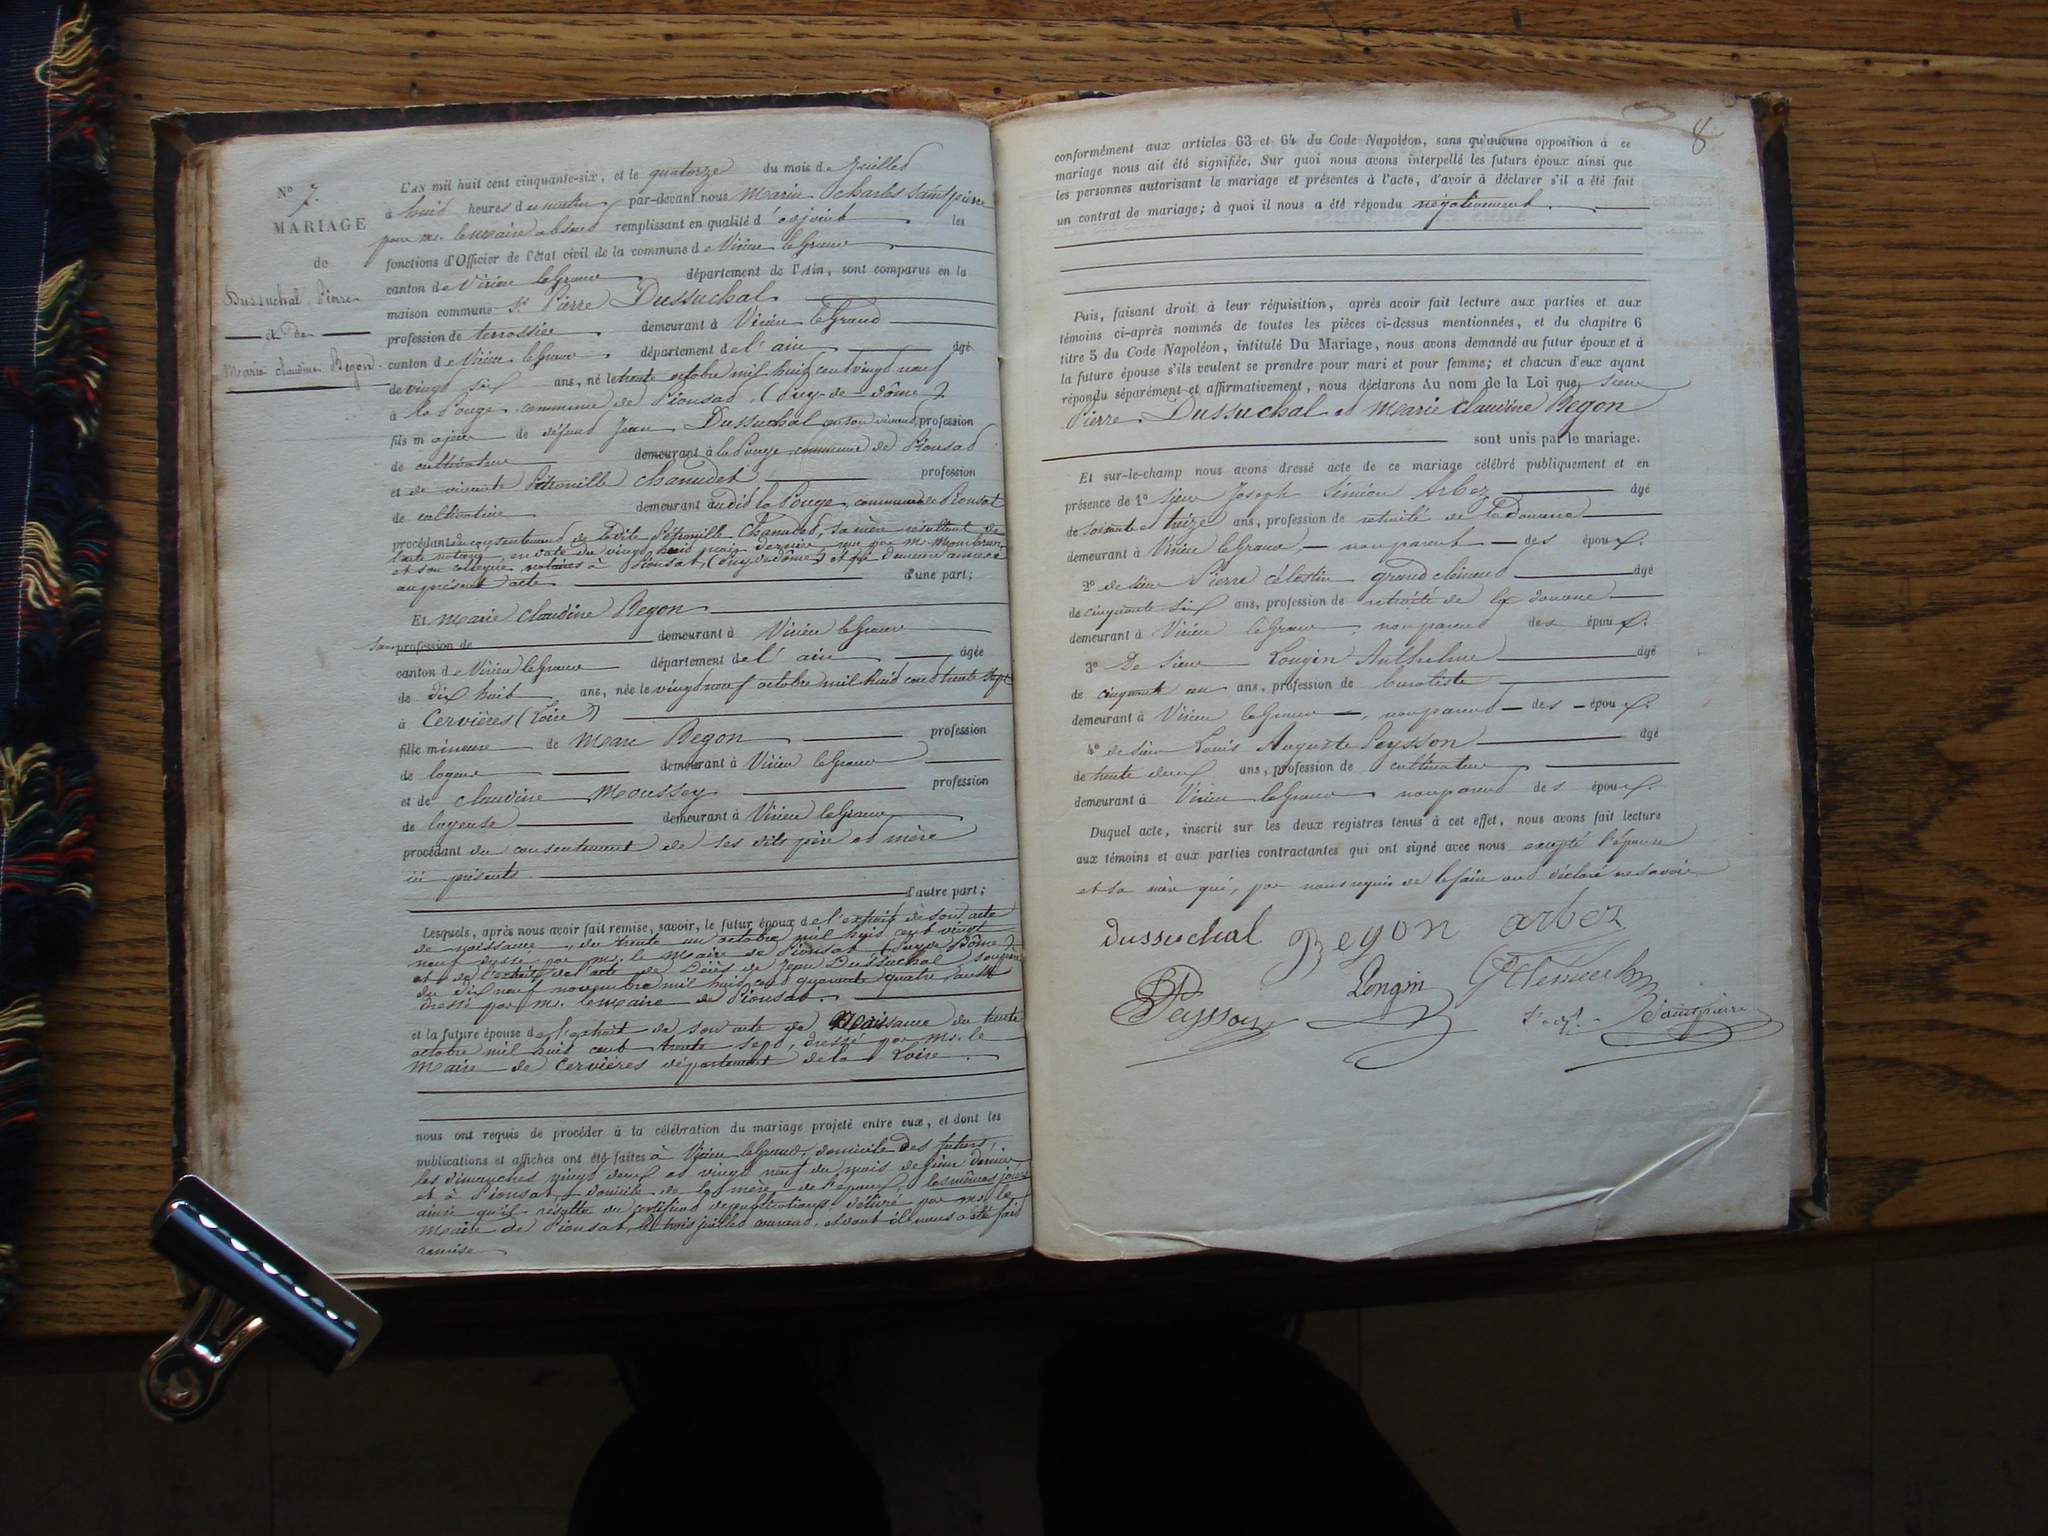 N° 7.
MARIAGE
de
Dussuchal Pierre
et de
Marie Claudine Begon
L'AN mil huit cent cinquante-six, et le quatorze du mois de Juillet
à huit heures du matin par-devant nous Marin Charles Saintpierre
pour mr. le maire absent remplissant en qualité d'adjoint les
fonctions d'Officier de l'état civil de la commune de Virieu le Grand
canton de Virieu le Grand département de l'Ain, sont comparus en la
maison commune Sr. Pierre Dussuchal
profession de terrassier demeurant à Virieu le Grand
canton de Virieu le Grand département de l'ain âgé
de vingt six ans, né le trente octobre mil huit cent vingt neuf
à la Pouge commune de Pionsat (Puy-de-dôme)
fils majeur de défunt Jean Dussuchal en son vivant, profession
de cultivateur demeurant à la Pouge commune de Pionsat
et de vivante Pétronille Chanudet profession
de cultivatrice demeurant audit la Pouge, commune de Pionsat
procédant du consentement de ladite Pétronille Chanudet, sa mère résultant de
l'acte notarié, en date du vingt huit juin dernier reçu par me.
et son collègue notaires à Pionsat, (Puy de dôme) et qui demeure annexé
au présent acte d'une part;
Et Marie Claudine Begon
Sans profession de demeurant à Virieu le Grand
canton de Virieu le Grand département de l'ain âgée
de dix huit ans, née le vingt neuf octobre mil huit cent trente sept
à Cervières (Loire)
fille mineure de Marc Begon profession
de logeur demeurant à Virieu le Grand
et de Claudine Moussey profession
de logeuse demeurant à Virieu le Grand
procédant du consentement de ses dits père et mère
ici présents d'autre part;
Lesquels, après nous avoir fait remise, savoir, le futur époux de l'extrait de son acte
de naissance, du trente un octobre mil huit cent vingt
neuf dressé par mr. le Maire de Pionsat (Puy de Dôme)
et de l'extrait de l'acte de décès de Jean Dussuchal, son père
du dix neuf novembre mil huit cent quarante quatre, aussi
dressé par mr. le Maire de Pionsat.
et la future épouse de l'extrait de son acte de Naissance du trente
octobre mil huit cent trente sept, dressé par Mr. le
Maire de Cervières département de la Loire.
nous ont requis de procéder à la célébration du mariage projeté entre eux, et dont les
publications et affiches ont été faites à Virieu le Grand, domicile des futurs,
les dimanches vingt deux et vingt neuf du mois de juin dernier
et à Pionsat, domicile de la mère de l'époux, les mêmes jours
ainsi qu'il résulte du certificat de publications délivré par mr. le
Maire de Pionsat, le trois juillet courant, et dont il nous a été fait
remise
8
conformément aux articles 63 et 64 du Code Napoléon, sans qu'aucune opposition à ce
mariage nous ait été signifiée. Sur quoi nous avons interpellé les futurs époux ainsi que
les personnes autorisant le mariage et présentes à l'acte, d'avoir à déclarer s'il a été fait
un contrat de mariage; à quoi il nous a été répondu négativement.
Puis, faisant droit à leur réquisition, après avoir fait lecture aux parties et aux
témoins ci-après nommés de toutes les pièces ci-dessus mentionnées, et du chapitre 6
titre 5 du Code Napoléon, intitulé Du Mariage, nous avons demandé au futur époux et à
la future épouse s'ils veulent se prendre pour mari et pour femme; et chacun d'eux ayant
répondu séparément et affirmativement, nous déclarons Au nom de la Loi que sieur
Pierre Dussuchal et Marie Claudine Begon
sont unis par le mariage.
Et sur-le-champ nous avons dressé acte de ce mariage célébré publiquement et en
présence de 1° sieur Joseph Siméon Arbez âgé
de soixante treize ans, profession de retraité de la douane
demeurant à Virieu le Grand, non parent des époux.
2° de sieur Pierre Célestin grandclément âgé
de cinquante six ans, profession de retraité de la douane
demeurant à Virieu le Grand, non parent des époux.
3° De sieur Longin Anthelme âgé
de cinquante un ans, profession de buraliste
demeurant à Virieu le Grand, non parent des époux.
4° de sieur Louis Auguste Peysson âgé
de trente deux ans, profession de cultivateur
demeurant à Virieu le Grand non parent des époux.
Duquel acte, inscrit sur les deux registres tenus à cet effet, nous avons fait lecture
aux témoins et aux parties contractantes qui ont signé avec nous excepté l'épouse
et sa mère qui, par nous requis de le faire ont déclaré ne savoir
Dussuchal Begon arbez
Peysson Longin
Saintpierre